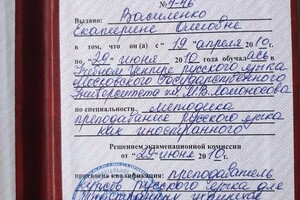 № 4-46
Выдано: Василенко
Екатерине Олеговне
в том, что он(а) с «19» апреля 2010г.
по «29» июня 2010 года обучалась
Учебном Центре русского языка
Московского Государственного
Университета им. М.В. Ломоносова
по специальности: методика
преподавание русского языка
как иностранного
Решением экзаменационной комиссии
от «29» июня 2010г.
присвоена квалификация: преподаватель
курсов русского языка для
иностранных